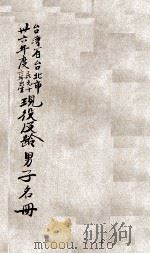 台灣省台北市
卅六年度
現役及齡男子名冊
www.duxiu.com